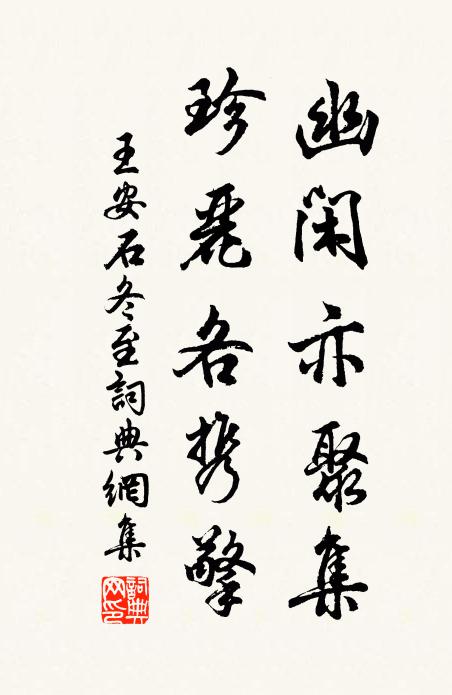 幽閑亦聚集
珍麗各携擎
王安石冬至詞典網集
詞典網印